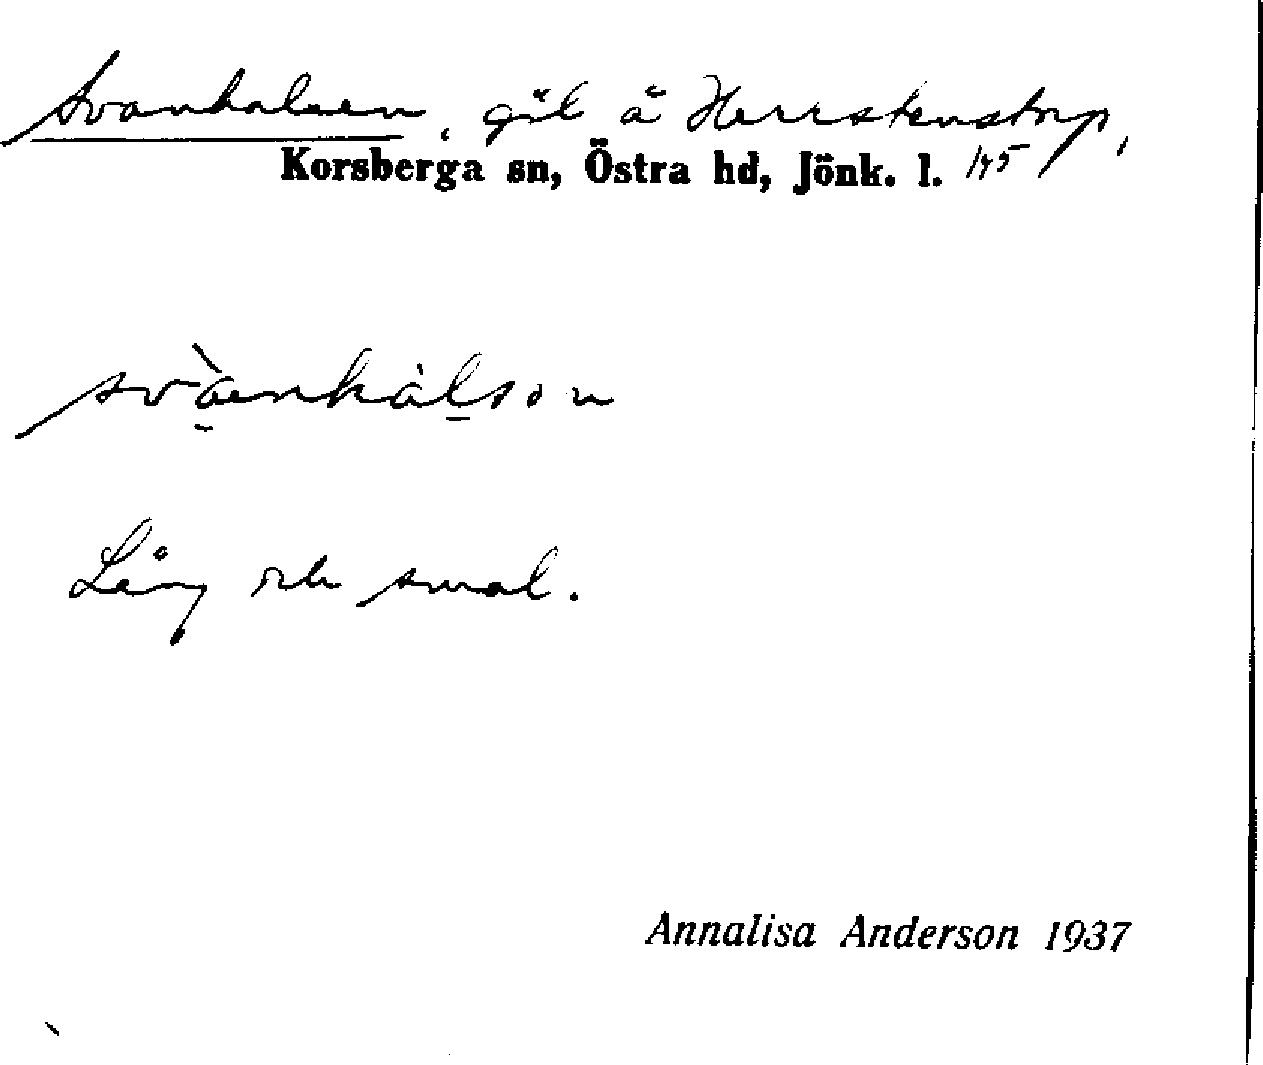 Svanhalsen, göl å Herrstenstorp,
Korsberga sn, Östra hd, Jönk. l. 145
svànhàlson
Lång och smal.
Annalisa Anderson 1937